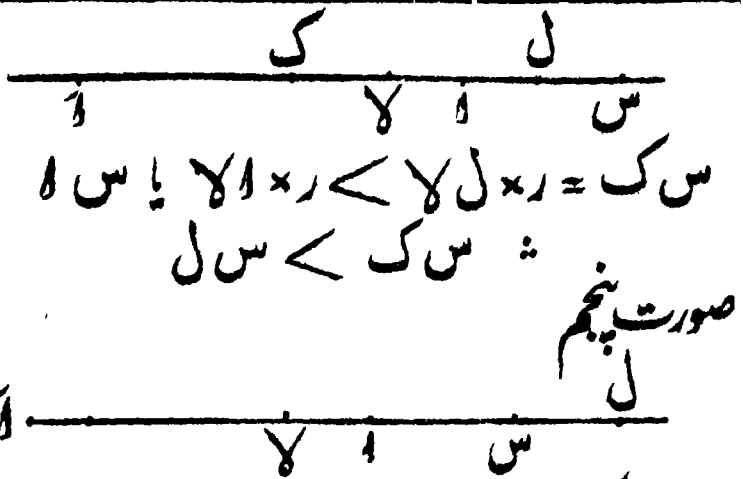 ک ل
آ لا ا س
س ک = ر × ل لا > ر × ا لا یا س ا
∴ س ک > س ل
صورت پنجم
ل
آ لا ا س